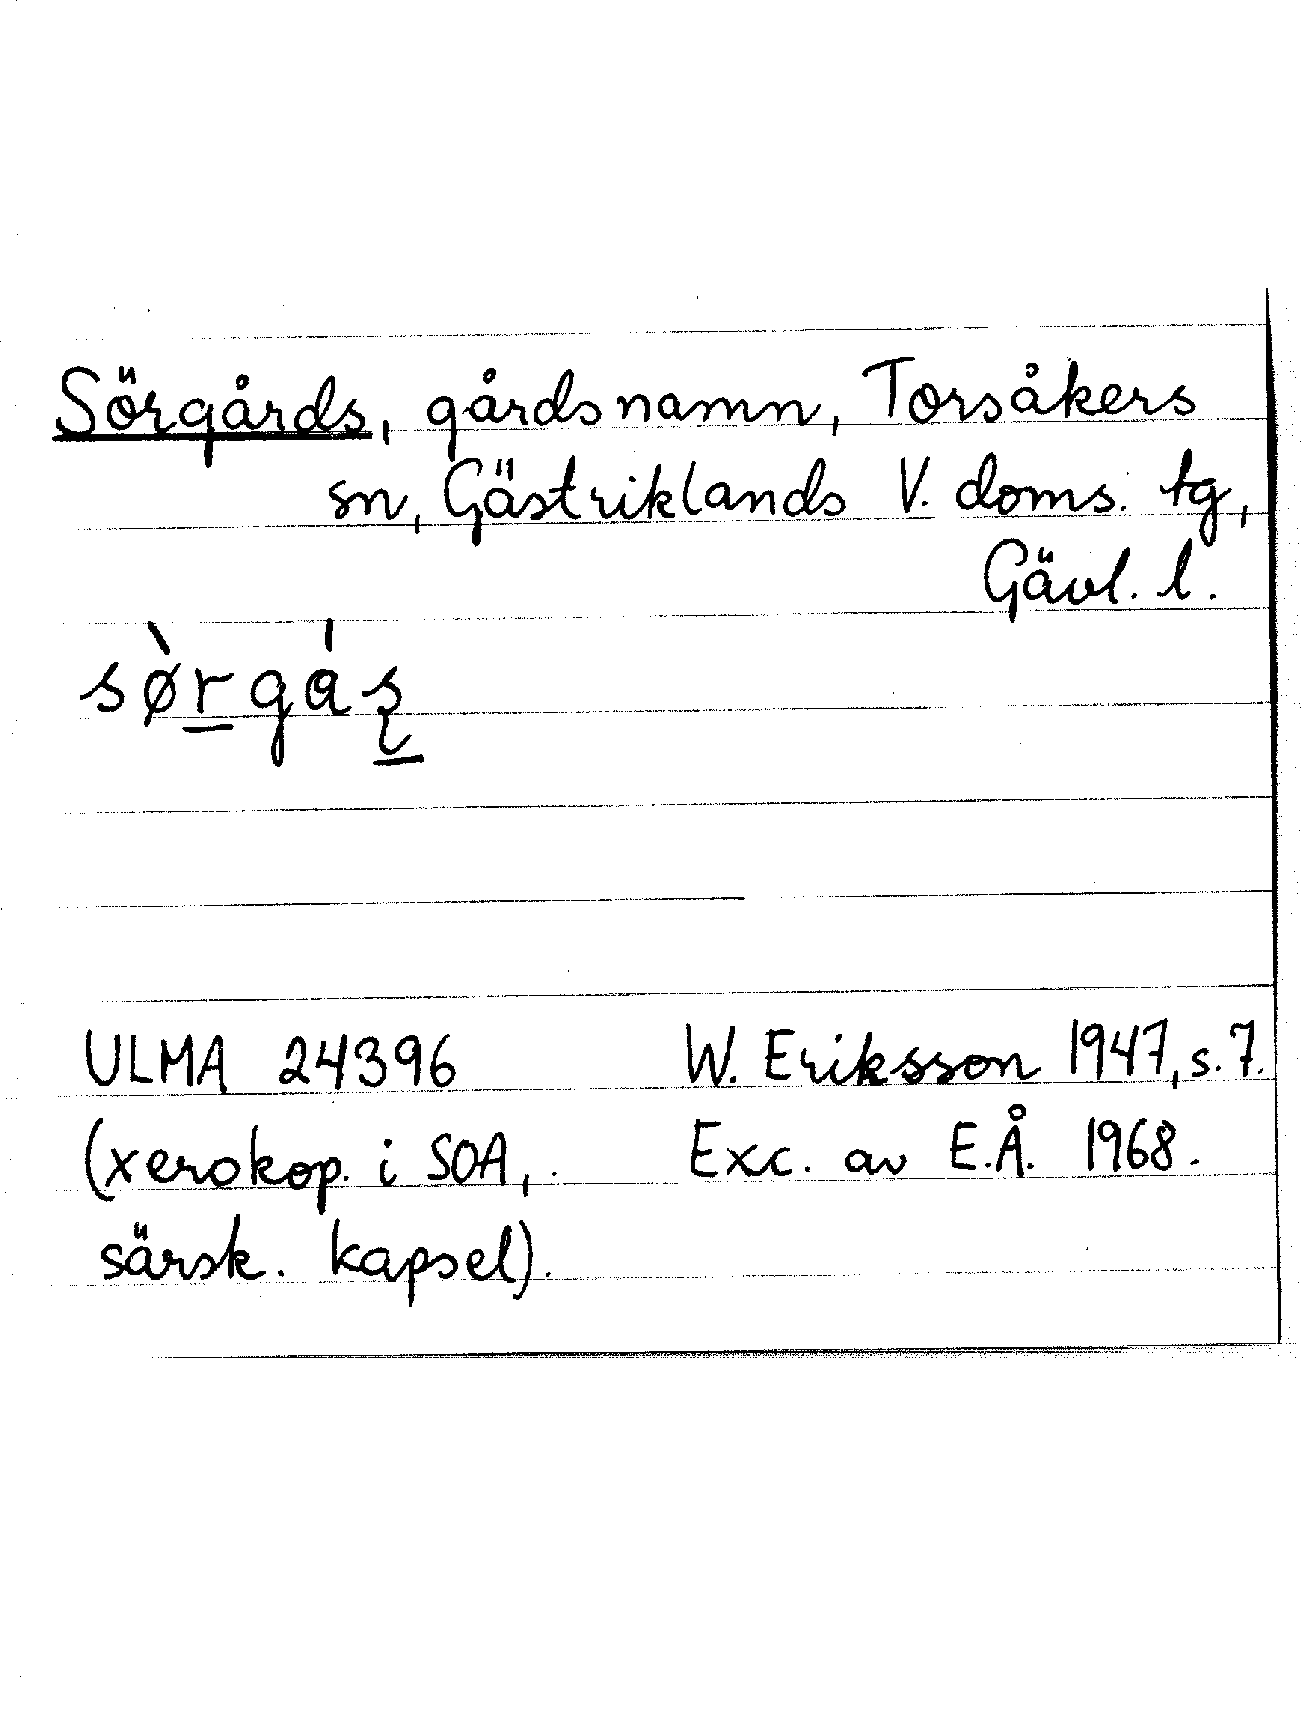 Sörgårds, gårdsnamn, Torsåkers
sn, Gästriklands V. doms. tg,
Gävl. l.
sø̀rgás̢
ULMA 24396 W. Eriksson 1947, s. 7.
(xerokop. i SOA, Exc. av E.Å. 1968.
särsk. kapsel).